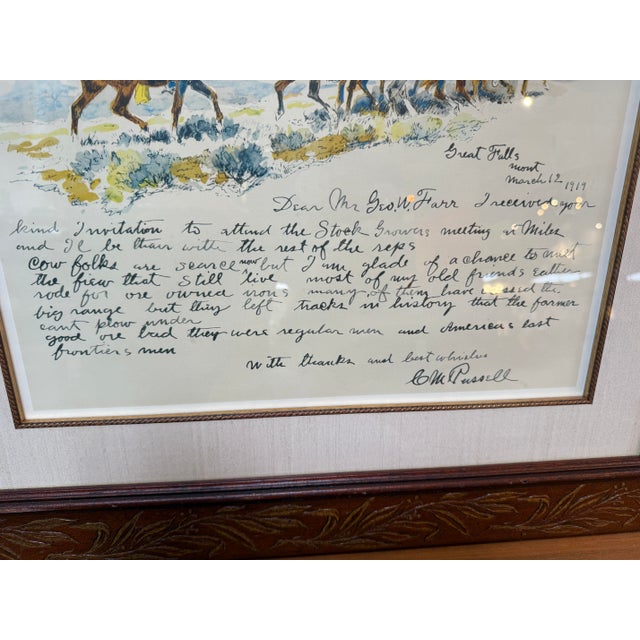 Great Falls
Mont
March 12 1919
Dear Mr Geo. W. Farr I received your
kind Invitation to attend the Stock Growers meeting in Miles
and I'l be thair with the rest of the reps
Cow folks are scarce now but I am glade of a chance to meet
the fiew that still live most of my old friends eather
rode for ore owned irons many of them have crossed the
big range but they left tracks in history that the farmer
cant plow under
good ore bad they were regular men and Americas last
frontiers men
With thanks and best whishes
C M Russell